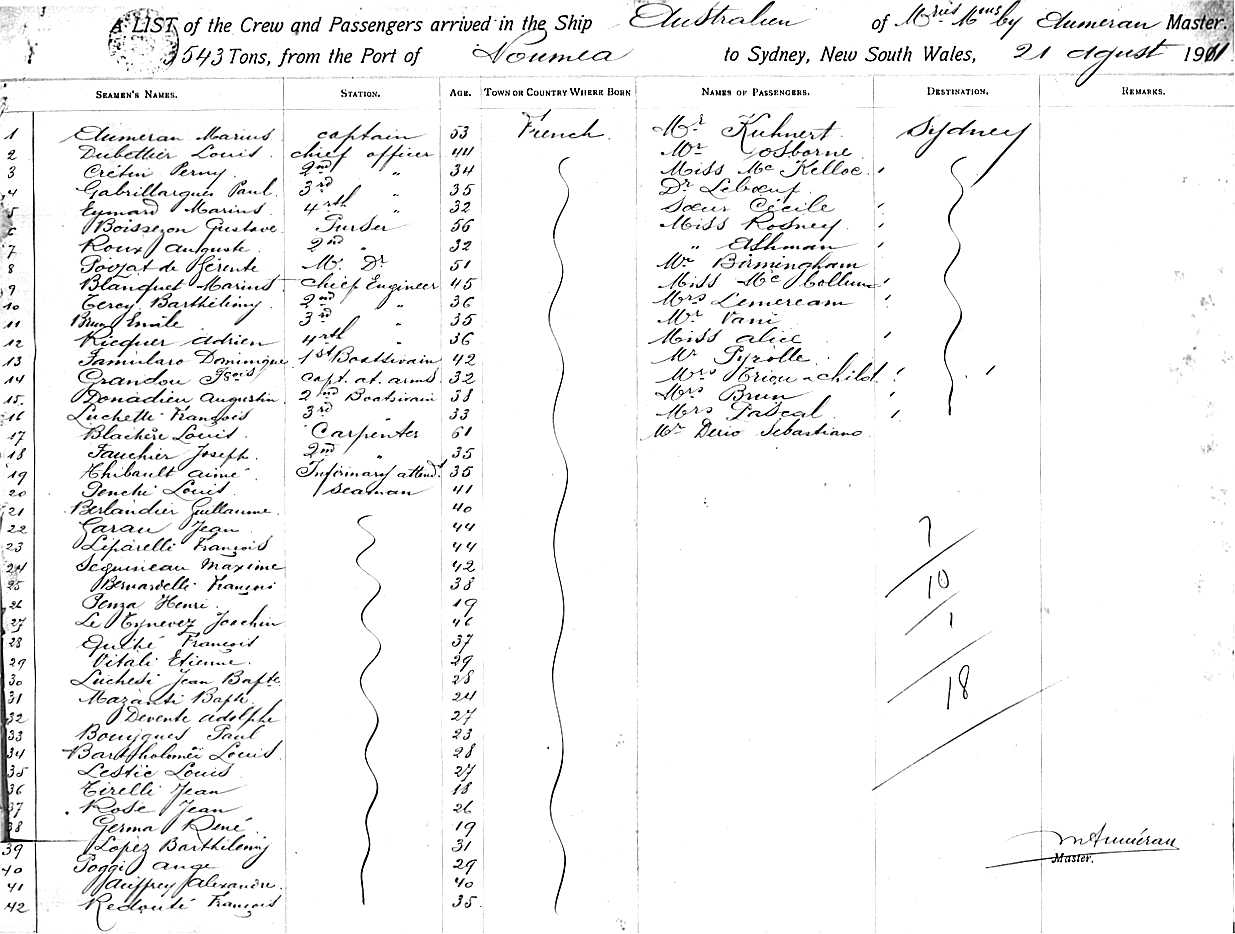 A LIST of the Crew and Passengers arrived in the Ship Australien of M^ries M^mes by Aumeran Master
3543 Tons, from the Port of Noumea to Sydney, New South Wales, 21 August 1901
SEAMEN'S NAMES. STATION. AGE. TOWN OR COUNTRY WHERE BORN NAMES OF PASSENGERS. DESTINATION. REMARKS.
1 Aumeran Marius captain 53 French Mr Kuhnert Sydney
2 Dubettier Louis chief officer 44 Mr Osborne
3 Crétin Perny 2nd " 34 Miss Mc Kelloc
4 Gabrillargues Paul 3rd " 35 Dr Lebœuf
5 Eymard Marius 4rth " 32 Sœur Cécile
6 Boissezon Gustave Purser 56 Miss Rosney
7 Roux Auguste 2nd " 32 " Ashman
8 de Gérente M. Dr 51 Mr Birmingham
9 Blanquet Marius chief Engineer 45 Miss Mc Collum
10 Tercy Barthélémy 2nd " 36 Mrs Lemeream
11 Brun Emile 3rd " 35 Mr Vani
12 Ricquer Adrien 4rth " 36 Miss Alice
13 Famularo Dominique 1st Boatswain 42 Mr Pyrolle
14 Grandou Fçois capt. at. arms 32 Mrs Triou & child
15 Donadieu Augustin 2nd Boatswain 38 Mrs Brun
16 Luchetti François 3rd " 33 Mrs Pascal
17 Blachère Louis Carpenter 61 Mr Derio Sebastiano
18 Fauchier Joseph 2nd " 35
19 Thibault Aimé Infirmary attendt 35
20 Penchi Louis Seaman 41
21 Berlandier Guillaume 40
22 Garau Jean 44
23 Liparelli François 44
24 Seguineau Maxime 42
25 Bernardelli François 38
26 Penza Henri 19
27 Le Joachin 46
28 François 37
29 Vitali Etienne 29
30 Luchesi Jean Bapte 28
31 Mazanti Bapte 24
32 Devente Adolphe 27
33 Bouygues Paul 23
34 Bartholomeï Louis 28
35 Lestic Louis 27
36 Tirelli Jean 18
37 Rose Jean 26
38 Germa René 19
39 Lopez Barthélémy 31
40 Poggi Ange 29
41 Auffrey Alexandre 40
42 Redouté François 35
7
10
1
18
M Aumeran
Master.